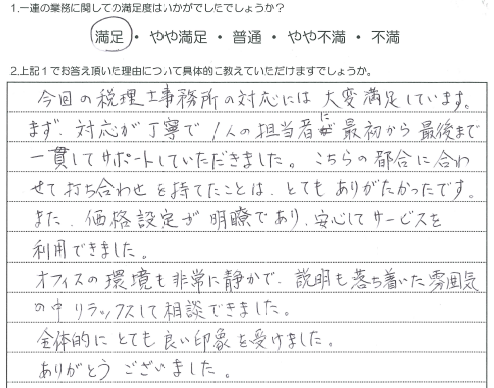 1.一連の業務に関しての満足度はいかがでしたでしょうか?
満足 ・ やや満足 ・ 普通 ・ やや不満 ・ 不満
2.上記1でお答え頂いた理由について具体的に教えていただけますでしょうか。
今回の税理士事務所の対応には大変満足しています。
まず、対応が丁寧で1人の担当者に最初から最後まで
一貫してサポートしていただきました。こちらの都合に合わ
せて打ち合わせを持てたことは、とてもありがたかったです。
また、価格設定が明瞭であり、安心してサービスを
利用できました。
オフィスの環境も非常に静かで、説明も落ち着いた雰囲気
の中リラックスして相談できました。
全体的にとても良い印象を受けました。
ありがとうございました。